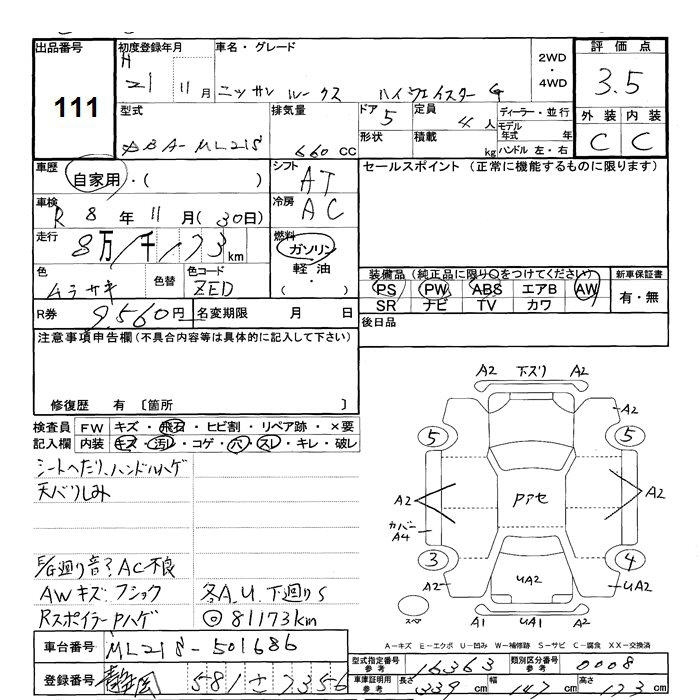 出品番号
111
初度登録年月
H 21 11 月
車名・グレード
ニッサン ルークス ハイウェイスター G
2WD
・
4WD
評価点
3.5
外装 内装
C C
型式
DBA-ML21S
排気量
660 cc
ドア 5
形状
定員 4 人
積載 kg
ディーラー・並行
モデル年式 年
ハンドル 左・右
車歴
自家用・( )
シフト AT
冷房 AC
セールスポイント (正常に機能するものに限ります)
車検
R 8 年 11 月 (30日)
走行
8万1千173 km
燃料
ガソリン
・
軽油
( ・ )
色
ムラサキ
色替
色コード
ZED
装備品 (純正品に限り○をつけてください)
PS PW ABS エアB AW
SR ナビ TV カワ
新車保証書
有・無
R券 9,560 円
名変期限 月 日
後日品
注意事項申告欄 (不具合内容等は具体的に記入して下さい)
修復歴 有 〔箇所 〕
検査員記入欄
FW キズ・飛石・ヒビ割・リペア跡・×要
内装 キズ・汚レ・コゲ・穴・スレ・キレ・破レ
シートへたり、ハンドルハゲ
天バリしみ
E/G廻り音? AC不良
AWキズ・フショク
各A.U.下廻りS
RスポイラーPハゲ
◎81173km
A2 下ズリ A2
A2
5 5
A2
PPアセ
A2
カバー
A4
3 4
A2
UA2
UA2
スペア
A1 UA2 A2
A-キズ E-エクボ U-凹み W-補修跡 S-サビ C-腐食 XX-交換済
車台番号 ML21S-501686
登録番号 静岡 581 さ 7356
型式指定番号 参考 16363
類別区分番号 参考 0008
車庫証明用 参考
長さ 339 cm
幅 147 cm
高さ 173 cm